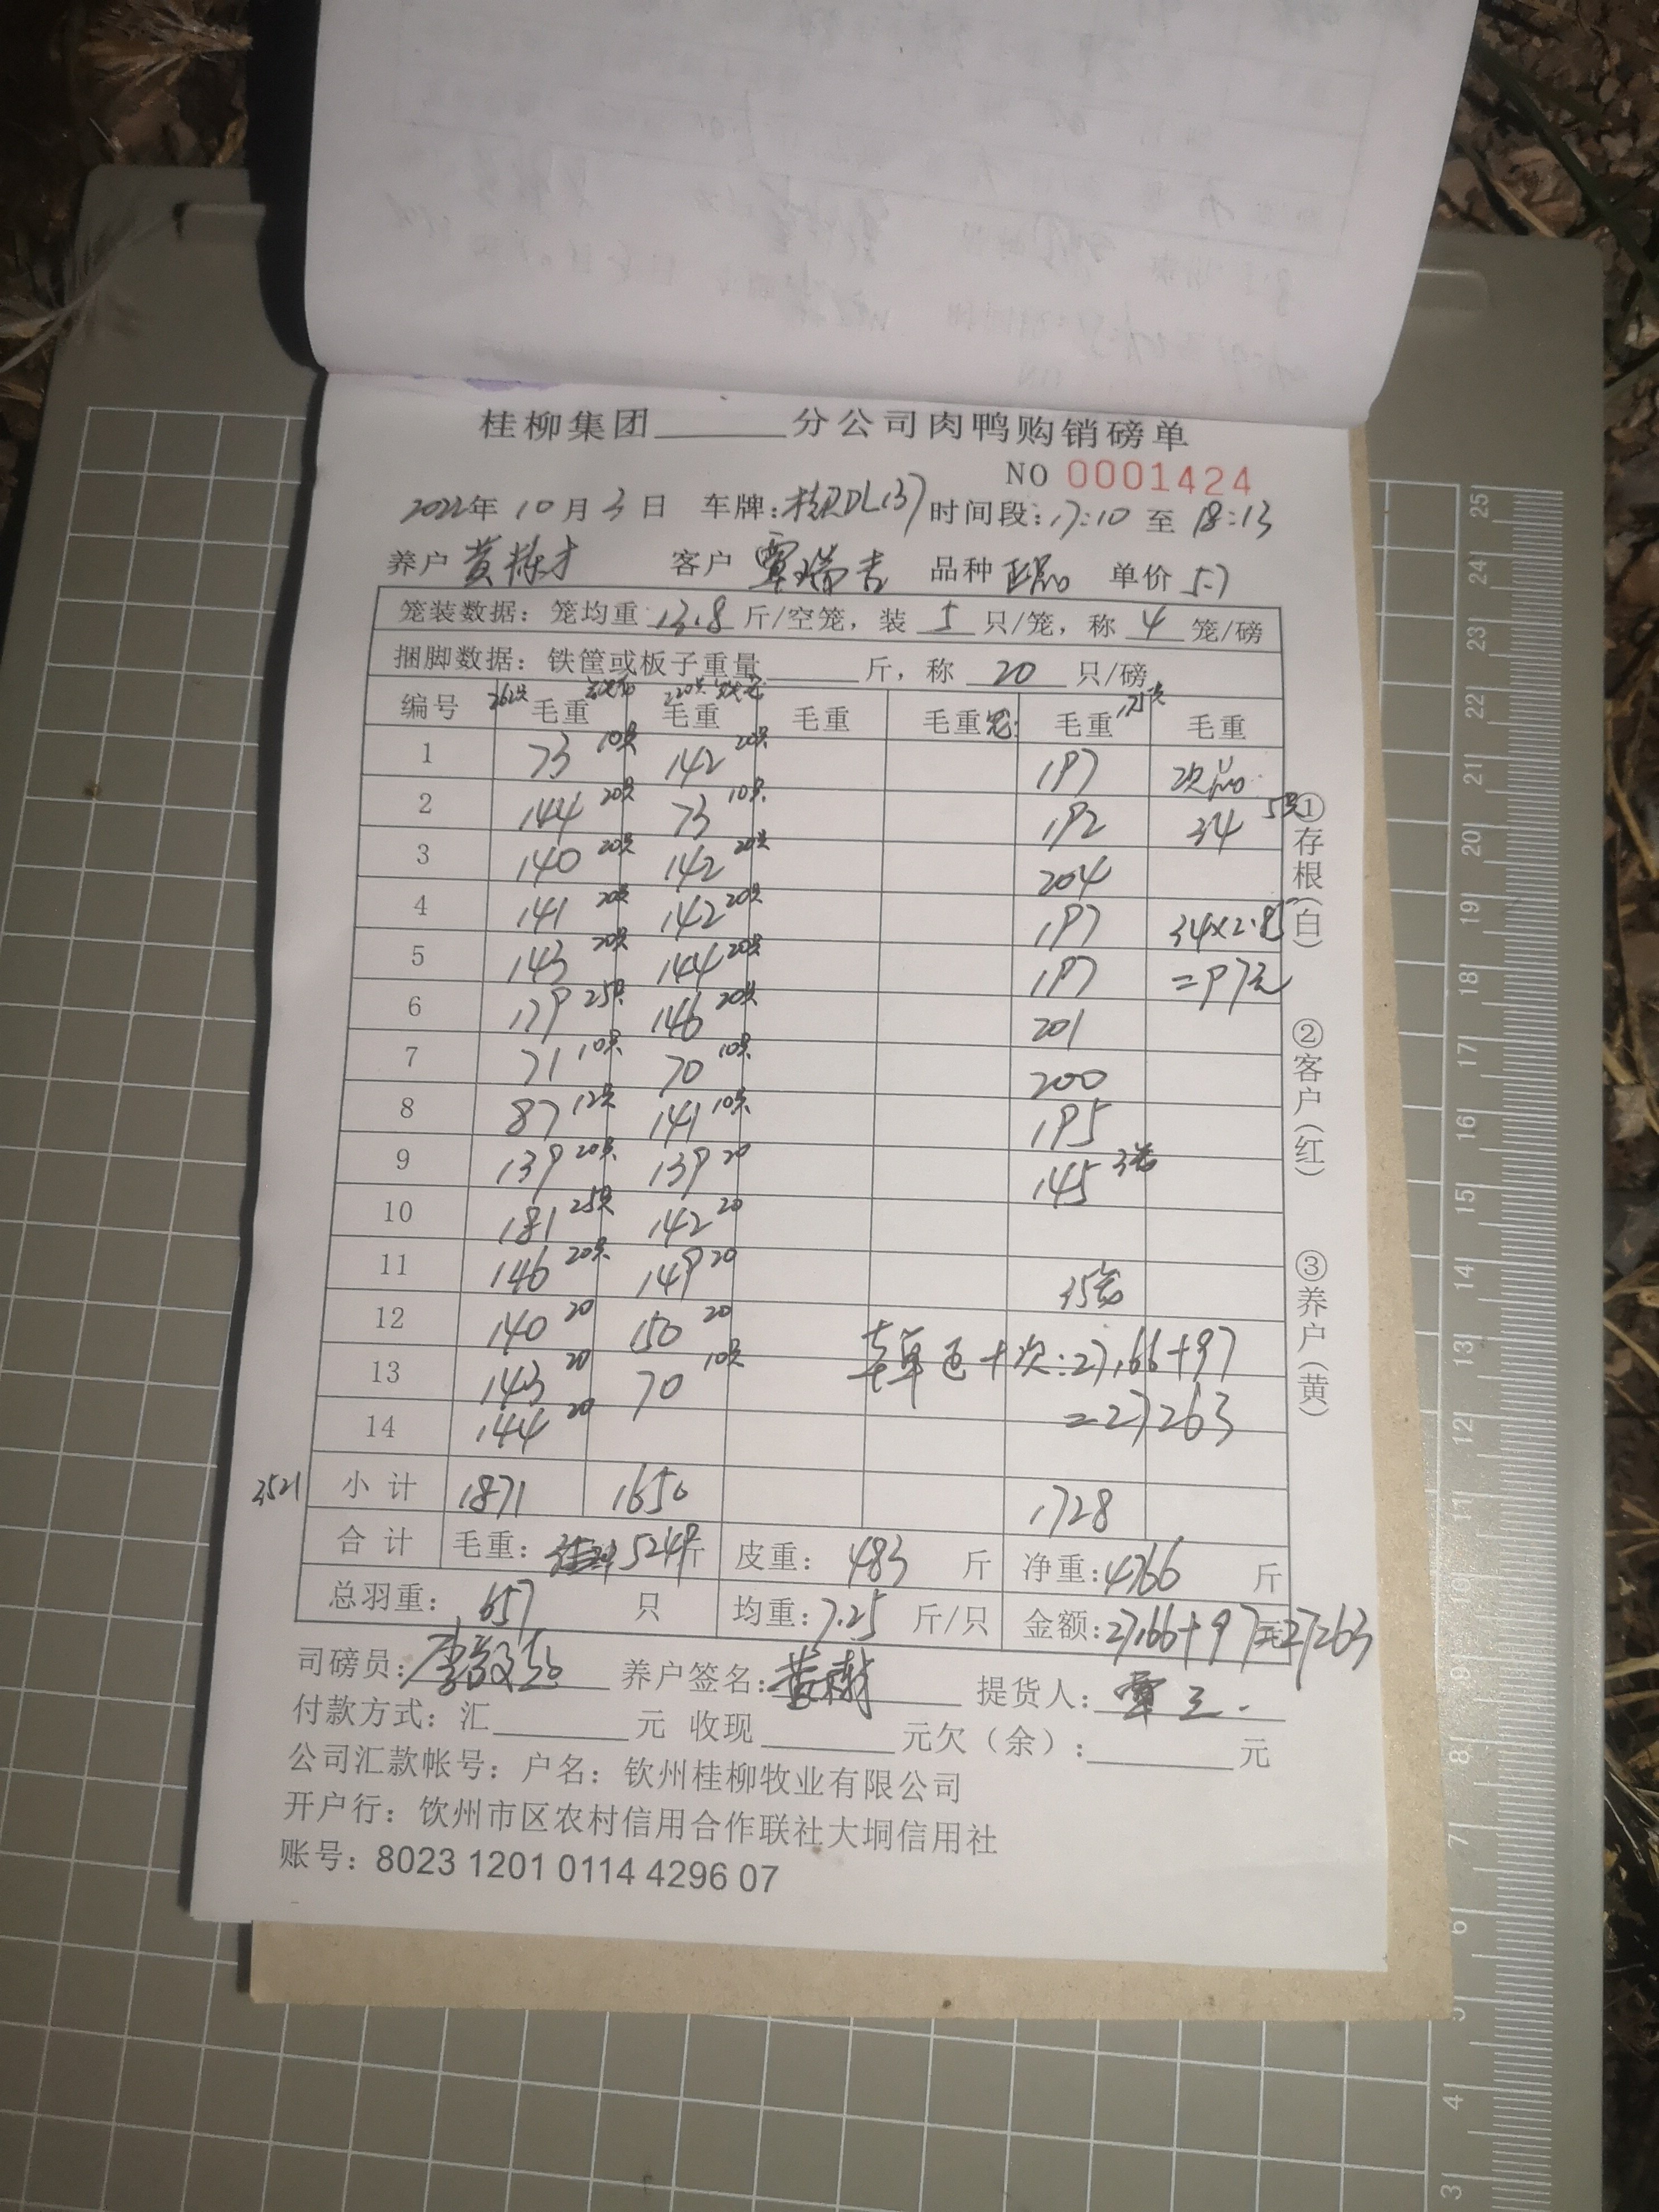 桂柳集团______分公司肉鸭购销磅单
NO 0001424
2022年 10月 3日 车牌: 时间段: 17:10 至 18:13
养户 黄栋才 客户 覃瑞吉 品种 正品 单价 5.7
笼装数据：笼均重 13.8 斤/空笼，装 5 只/笼，称 4 笼/磅
捆脚数据：铁筐或板子重量______斤，称 20 只/磅
编号 262只 毛重 220只 毛重 毛重 毛重 毛重 175只 毛重
1 73 10只 142 20只 197 次品
2 144 20只 73 10只 192 34 5只
3 140 20只 142 20只 204
4 141 20只 142 20只 197 34×2.85
5 143 20只 144 20只 197 =97元
6 179 25只 146 20只 201
7 71 10只 70 10只 200
8 87 12只 141 10只 195
9 139 20只 139 20 145 3笼
10 181 25只 142 20
11 146 20只 149 20 35笼
12 140 20 150 20
13 143 20 70 10只 十次:27166+97
14 144 20 =27263
3521 小计 1871 1650 1728
合计 毛重: 5249斤 皮重: 483 斤 净重: 4766 斤
总羽重: 657 只 均重: 7.25 斤/只 金额: 27166+97元=27263
司磅员: 养户签名: 提货人: 覃三.
付款方式：汇______元 收现______元欠（余）:______元
公司汇款帐号：户名：钦州桂柳牧业有限公司
开户行：钦州市区农村信用合作联社大垌信用社
账号：8023 1201 0114 4296 07
①存根（白）
②客户（红）
③养户（黄）
25
24
23
22
21
20
19
18
17
16
15
14
13
12
11
10
9
8
7
6
5
4
3